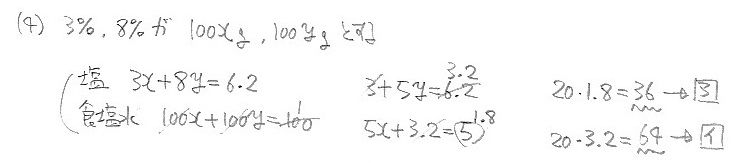 (4) 3%, 8% が 100xg, 100yg とする
塩 3x+8y=6.2
食塩水 100x+100y=100 1
3+5y=6.2 3.2
5x+3.2=5 1.8
20·1.8=36→3
20·3.2=64→イ